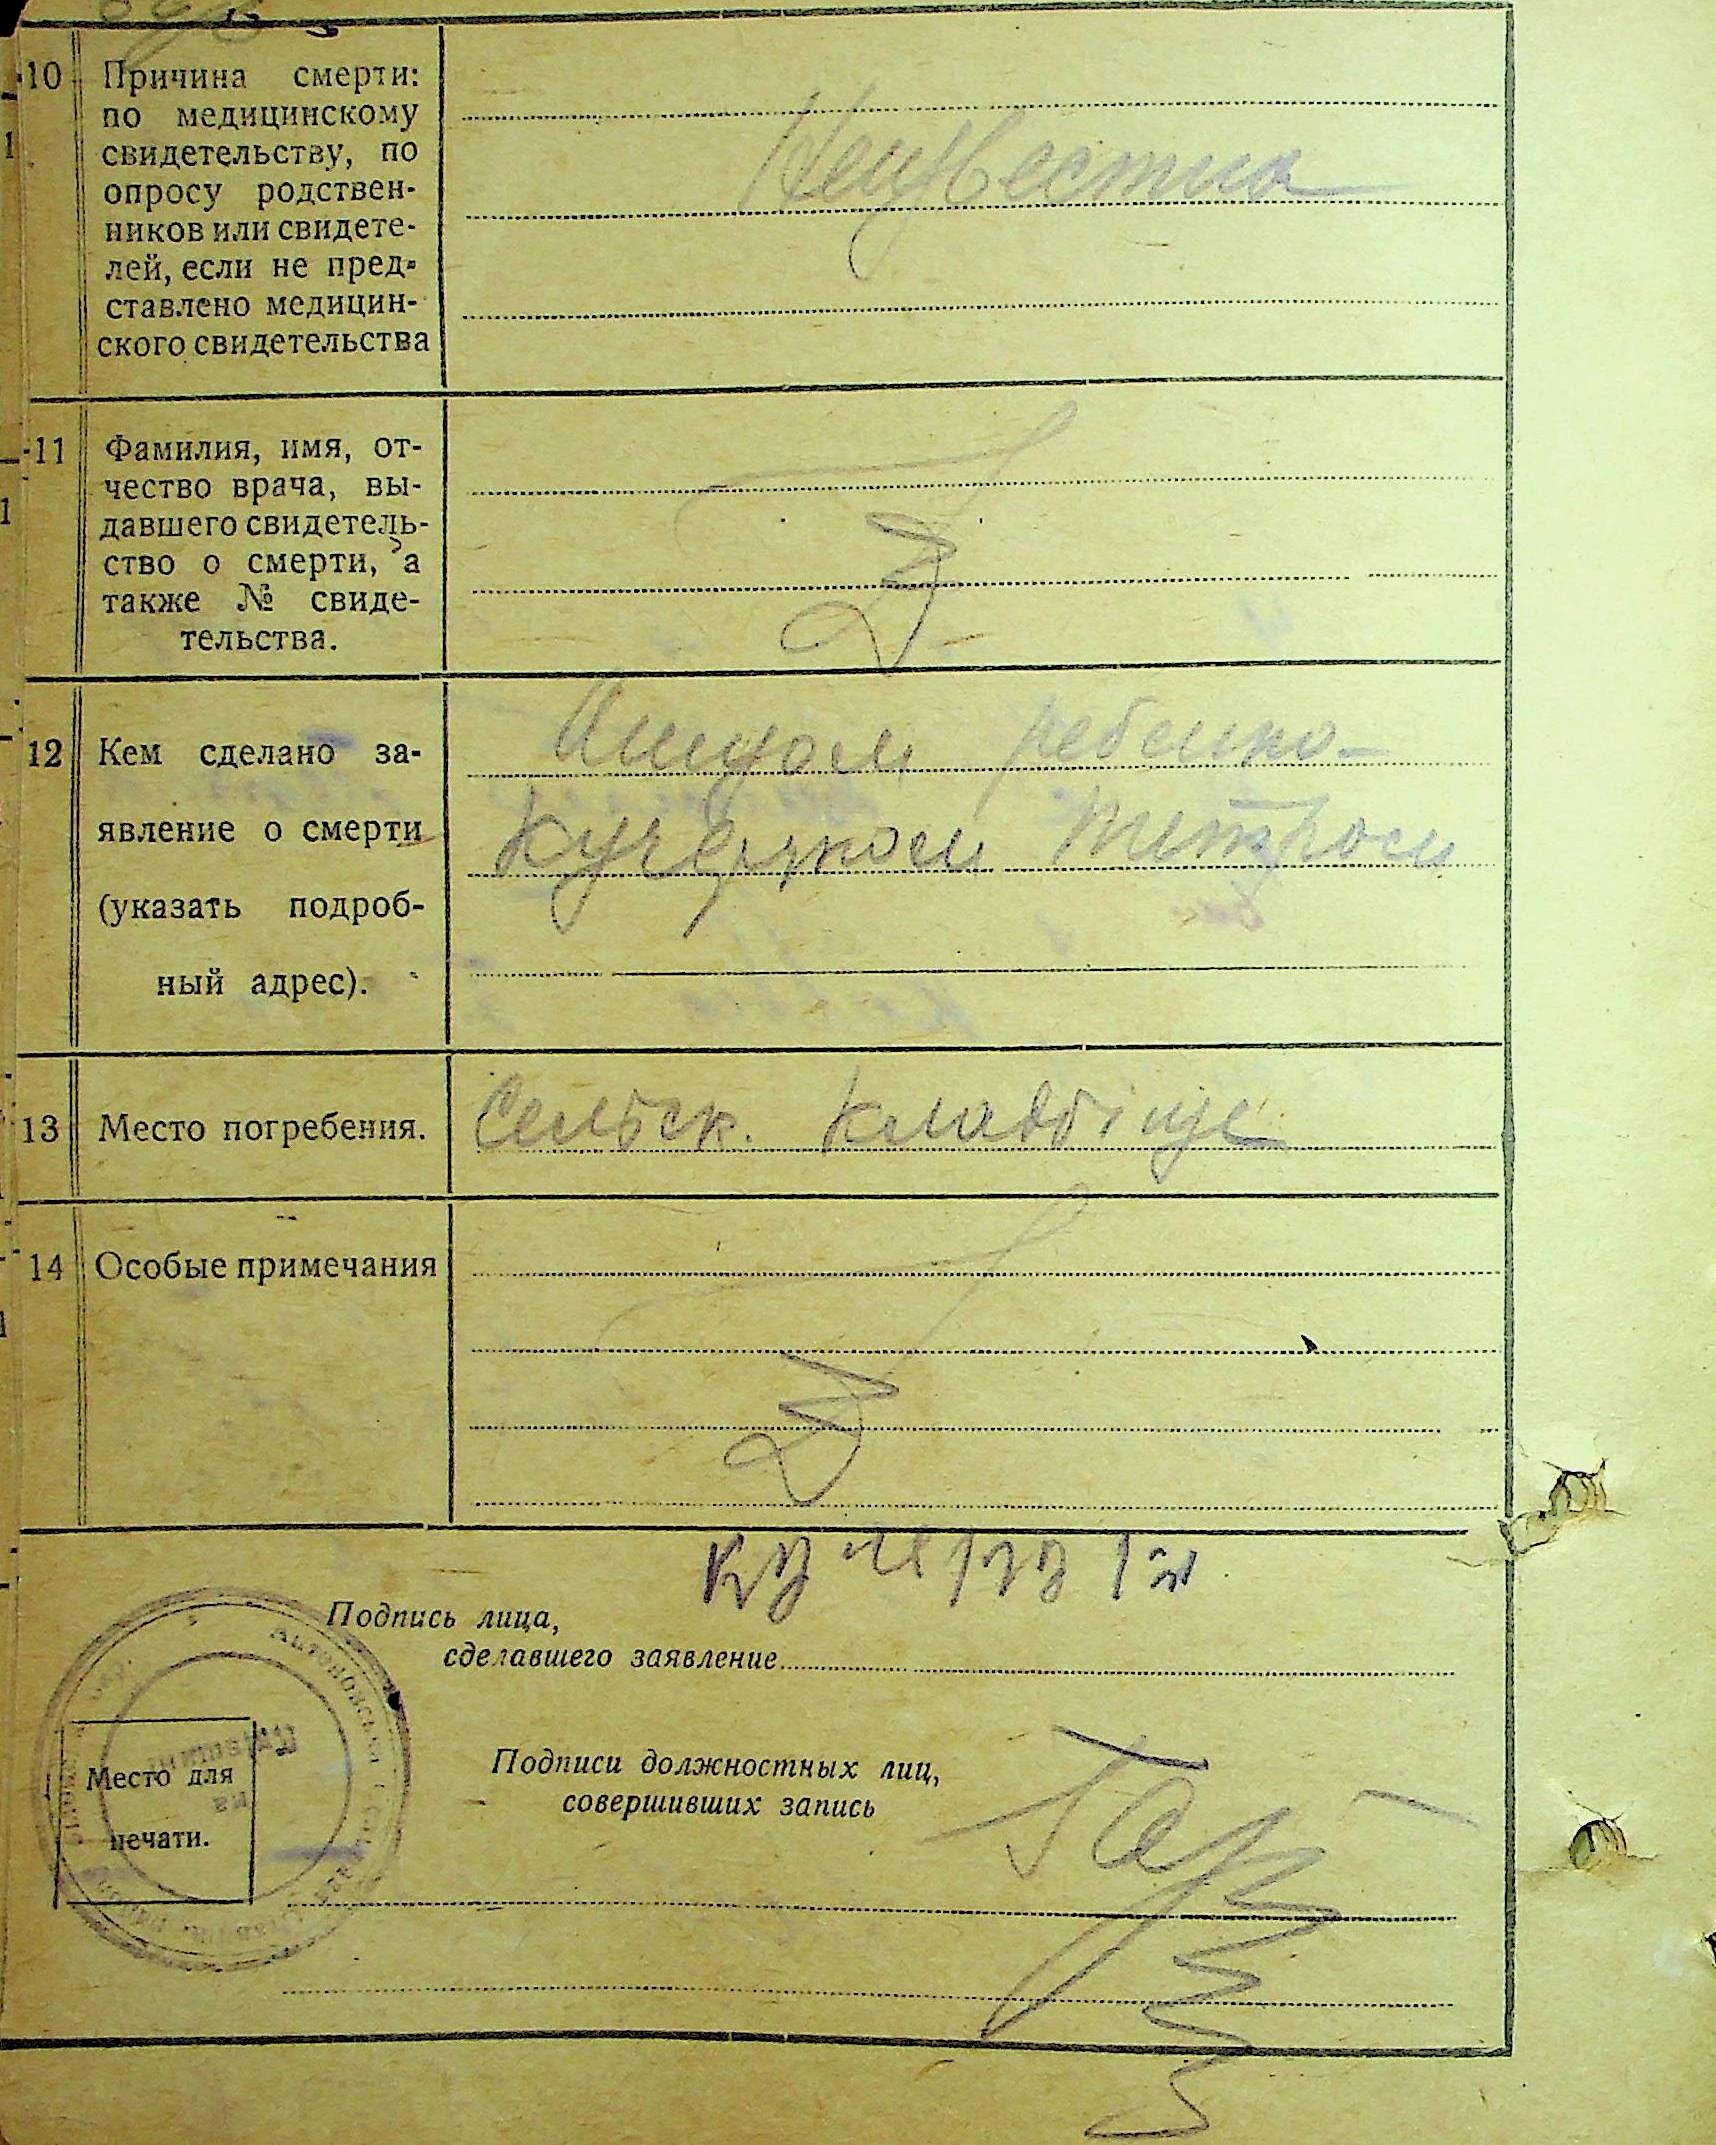 10 Причина смерти:
по медицинскому
свидетельству, по
опросу родствен-
ников или свидете-
лей, если не пред-
ставлено медицин-
ского свидетельства
Неизвестна
11 Фамилия, имя, от-
чество врача, вы-
давшего свидетель-
ство о смерти, а
также № свиде-
тельства.
12 Кем сделано за-
явление о смерти
(указать подроб-
ный адрес).
ребенка
13 Место погребения.
Сельск. кладбіще
14 Особые примечания
Подпись лица,
сделавшего заявление
Подписи должностных лиц,
совершивших запись
Место для
печати.